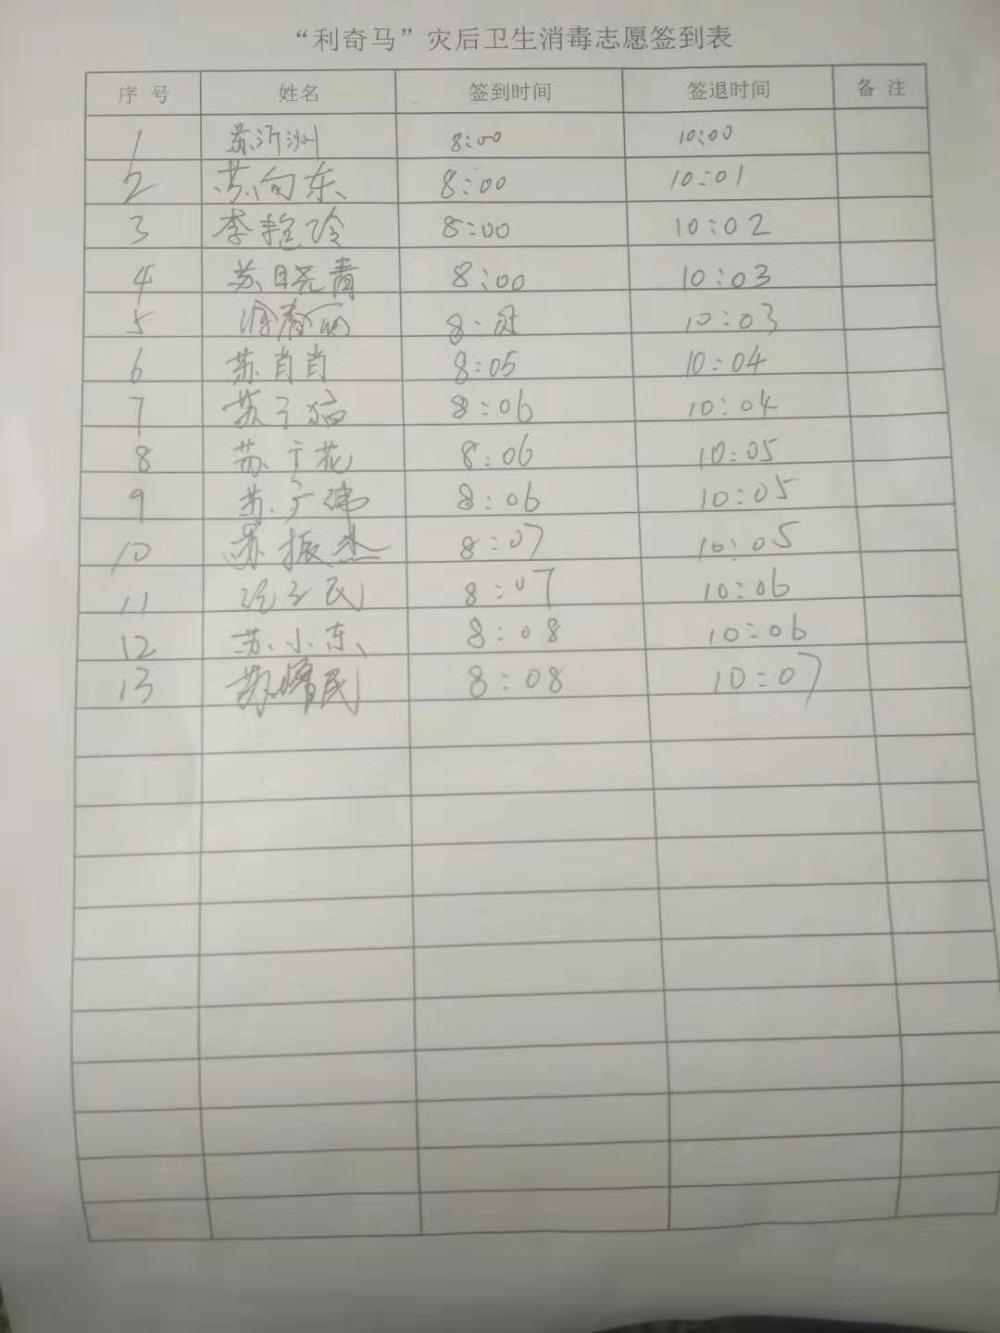 “利奇马”灾后卫生消毒志愿签到表
序号 姓名 签到时间 签退时间 备注
1 苏沂州 8:00 10:00
2 苏向东 8:00 10:01
3 李艳玲 8:00 10:02
4 苏晓青 8:00 10:03
5 8: 10:03
6 苏肖肖 8:05 10:04
7 苏 8:06 10:04
8 苏于花 8:06 10:05
9 苏广伟 8:06 10:05
10 苏振杰 8:07 10:05
11 民 8:07 10:06
12 苏小东 8:08 10:06
13 苏 民 8:08 10:07